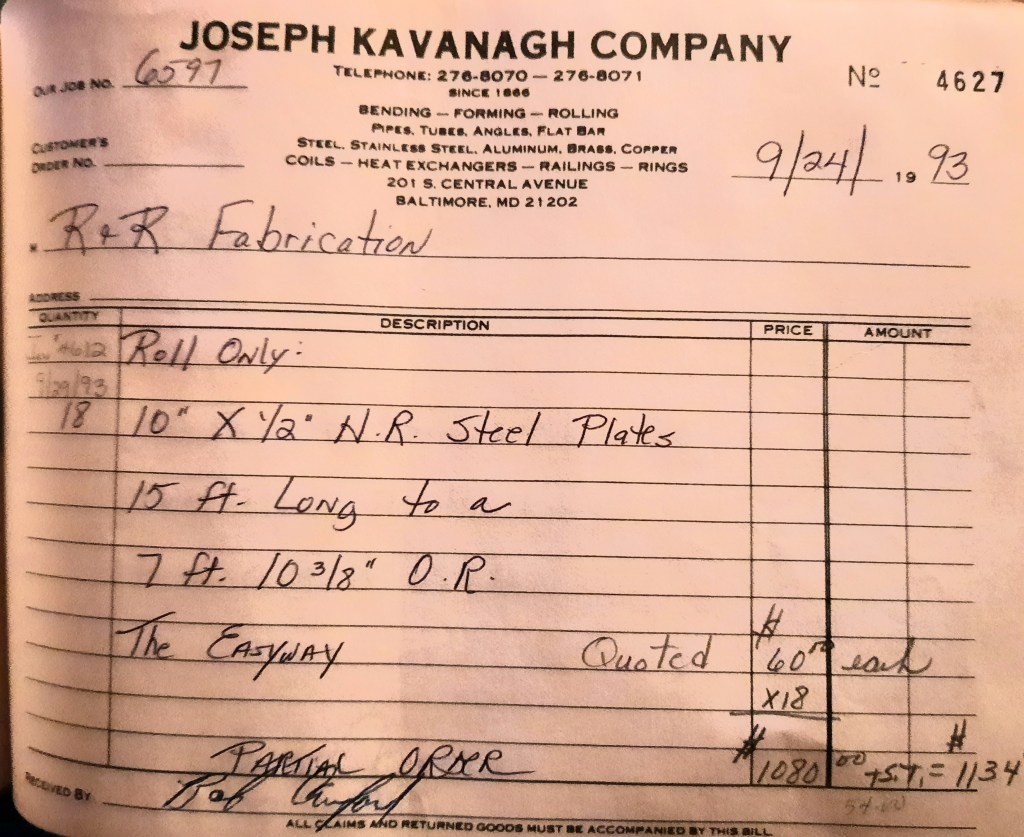 JOSEPH KAVANAGH COMPANY
TELEPHONE: 276-8070 — 276-8071
SINCE 1866
BENDING — FORMING — ROLLING
PIPES, TUBES, ANGLES, FLAT BAR
STEEL, STAINLESS STEEL, ALUMINUM, BRASS, COPPER
COILS — HEAT EXCHANGERS — RAILINGS — RINGS
201 S. CENTRAL AVENUE
BALTIMORE, MD 21202
OUR JOB NO. 6597
Nº 4627
CUSTOMER'S
ORDER NO.
9/24/ 19 93
M R & R Fabrication
ADDRESS
QUANTITY DESCRIPTION PRICE AMOUNT
Inv # 4612 Roll Only:
9/29/93
18 10" X 1/2" H.R. Steel Plates
15 ft. Long to a
7 ft. 10 3/8" O.R.
The EASYWAY Quoted $60.00 each
X18
PARTIAL ORDER $1080.00 + S.T. = $1134
54.00
RECEIVED BY Bob
ALL CLAIMS AND RETURNED GOODS MUST BE ACCOMPANIED BY THIS BILL